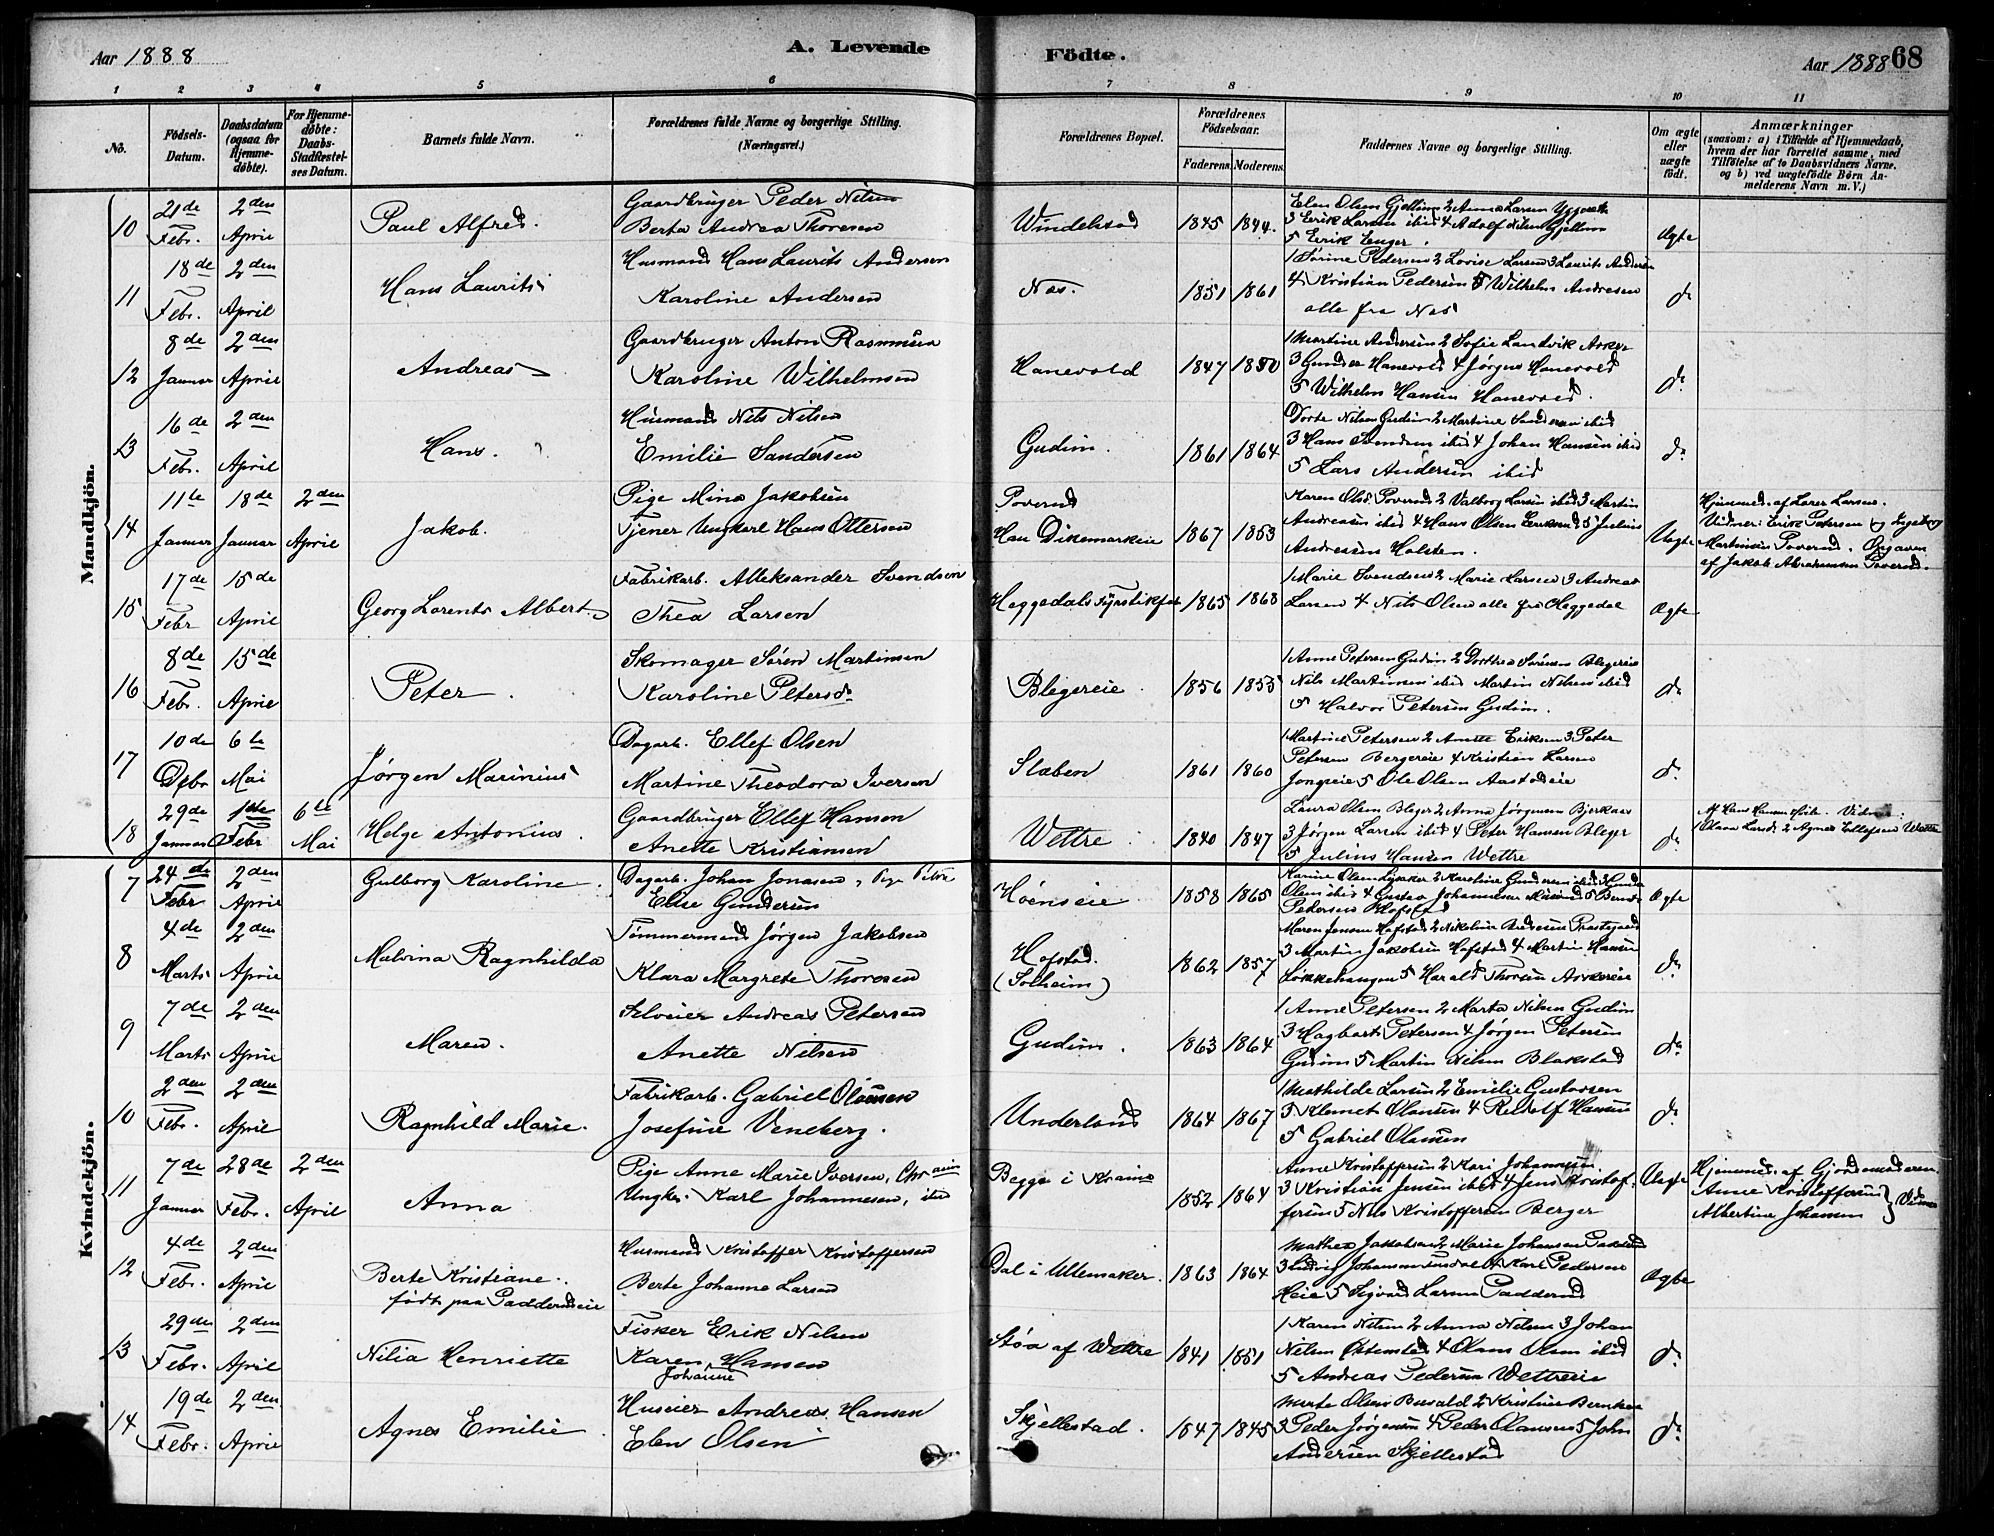 Aar 1888
A. Levende
Födte.
Aar 1888 68
1 2 3 4 5 6 7 8 9 10 11
No.
Födsels-Datum.
Daabsdatum (ogsaa for Hjemme-döbte).
For Hjemme-döbte: Daabs-Stadfæstel-ses Datum.
Barnets fulde Navn.
Forældrenes fulde Navne og borgerlige Stilling.
(Næringsvei.)
Forældrenes Bopæl.
Forældrenes Födselsaar.
Faderens. Moderens.
Faddernes Navne og borgerlige Stilling.
Om ægte eller uægte födt.
Anmærkninger
(saasom: a) i Tilfælde af Hjemmedaab,
hvem der har forrettet samme, med
Tilföielse af to Daabsvidners Navne.
og b) ved uægtefödte Börn An-
melderens Navn m. V.)
Mandkjön.
10 21de Febr. 2den April Paul Alfred.
Gaardbruger Peder Nilsen
Berta Andrea Thoresen
1845 1844.
3 Eerik Larsen ibid 4 Adolf Nilsen Gjellum
Ægte
11 18de Febr. 2den April Hans Laurits
Husmand Hans Laurits Andersen
Karoline Andersen
Næs. 1851 1861
1 Sørine Pedersen 2 Lovise Larsen 3 Laurits Andersen
4 Kristian Pedersen 5 Wilhelm Andresen
alle fra Næs
do
12 8de Januar 2den April Andreas
Gaardbruger Anton Rasmussen
Karoline Wilhelmsen
Hanevold 1847 1850
3 Gunder Hanevold 4 Jørgen Hanevold
5 Wilhelm Hansen Hanevold.
do
13 16de Febr. 2den April Hans.
Husmand Nils Nilsen
Emilie Sandersen
Gudim. 1861 1864
Dorte Nilsen Gudim 2 Martine Sandersen ibid
3 Hans Svendsen ibid 4 Johan Hansen ibid
5 Lars Andersen ibid
do
14 11te Januar 18de Januar 2den April Jakob.
Pige Mina Jakobsen
Tjener Ungkarl Hans Ottersen
Poverud
Han Dikemarkeie 1867 1853
Karen Olsd. Poverud 2 Valborg Larsen ibid 3 Martin
Andreasen ibid 4 Hans Olsen 5 Julius
Andresen Holsten.
Uægte
Hjemmed. af Larer Larsen.
Vidner: Erik Petersen og Ingeborg
Martinsen Poverud. Opgaven
af Jakob Abrahamsen Poverud.
15 17de Febr 15de April Georg Lorents Albert
Fabrikarb. Alleksander Svendsen
Thea Larsen
Heggedals Fyrstikfab 1865 1868
1 Marie Svendsen 2 Marie Larsen 3 Andreas
Larsen 4 Nils Olsen alle fra Heggedal
Ægte
16 8de Febr. 15de April Peter.
Skomager Søren Martinsen
Karoline Petersd.
Blegereie 1856 1855
1 Anne Petersen Gudim 2 Dorthea Sørensen Blegereie
Nils Martinsen ibid Martin Nilsen ibid
5 Halvor Petersen Gudim.
do
17 10de Debr 6te Mai Jørgen Marinius
Dagarb. Ellef Olsen
Martine Theodora Iversen
Slæben 1861 1860
1 Martine Petersen 2 Anette Eriksen 3 Peter
Petersen Bergereie 4 Kristian Larsen
Jongseie 5 Ole Olsen Aastadeie
do
18 29de Januar 1ste Febr 6te Mai Helge Antonius.
Gaardbruger Ellef Hansen
Anette Kristiansen
Wettre 1840 1847
Laura Olsen Bleger 2 Anna Jørgensen Bjerkaas
3 Jørgen Larsen ibid 4 Peter Hansen Bleger
5 Julius Hansen Wettre
do
Vidner:
1 Olava Larsd. 2 Agnes Ellefsen Wettre
Kvindekjön.
7 24de Febr 2den April Gulborg Karoline.
Dagarb. Johan Jonasen, Pige Petra
Elise Gundersen
Høenseie 1858 1865
Petersen Hofstad
Ægte
8 4de Marts 2den April Malvina Ragnhilda
Tømmermand Jørgen Jakobsen
Klara Margrete Thoresen
Hofstad.
(Solheim) 1862 1857
Maren Jensen Hofstad 2 Nikoline Andersen Præstegaard
3 Martin Jakobsen Hofstad 4 Martin Hansen
Løkkehangen 5 Harald Thorsen Askereie
do
9 7de Marts 2den April Maren.
Selveier Andreas Petersen
Anette Nilsen
Gudim. 1863 1864
1 Anne Petersen 2 Marta Nilsen Gudim
3 Hagbart Petersen 4 Jørgen Petersen
Gudim 5 Martin Nilsen Blakstad
do
10 2den Febr. 2den April Ragnhild Marie.
Fabrikarb. Gabriel Olausen
Josefine Veneberg.
Underland 1864 1867
1 Mathilde Larsen 2 Emilie Gustavsen
3 Klemet Olausen 4 Rudolf Hansen
5 Gabriel Olausen
do
11 7de Januar 28de Febr. 2den April Anna
Pige Anne Marie Iversen,
Ungk. Karl Johannesen, ibid
Begge i 1852 1864
Anne Kristoffersen 2 Kari Johannesen
3 Kristian Jensen ibid 4 Jens Kristof-
fersen 5 Nils Kristoffersen Berger
Uægte
Hjemmed. af Gjordemoderen.
Anne Kristoffersen
Albertine Johansen } Vidner
12 4de Febr. 2den April Berte Kristiane.
født paa Padderudeie
Husmand Kristoffer Kristoffersen
Berte Johanne Larsen
Dal i Ullensaker. 1863 1864
Mathea Jakobsen 2 Marie Johansen Padderud
3 Ludvig Johansen 4 Karl Pedersen
Heie 5 Sigvard Larsen Padderud
Ægte
13 29de Febr. 2den April Nilia Henriette
Fisker Erik Nilsen
Karen Hansen
Johanne
Støa af Wettre 1841 1851
1 Karen Nilsen 2 Anna Nilsen 3 Johan
Nilsen Østenstad 4 Olaus Olsen ibid
5 Andreas Pedersen Wettreeie
do
14 19de Febr. 2den April Agnes Emilie.
Huseier Andreas Hansen
Elen Olsen
Skjellestad. 1847 1845
3 Peder Jørgensen 4 Peder Olausen 5 John
Andersen Skjellestad
do